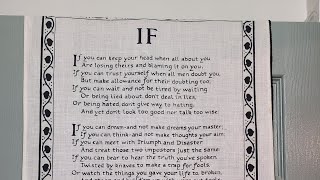 IF
If you can keep your head when all about you
Are losing theirs and blaming it on you,
If you can trust yourself when all men doubt you,
But make allowance for their doubting too;
If you can wait and not be tired by waiting
Or being lied about, don't deal in lies,
Or being hated, don't give way to hating,
And yet don't look too good, nor talk too wise:
If you can dream-and not make dreams your master;
If you can think-and not make thoughts your aim;
If you can meet with Triumph and Disaster
And treat those two impostors just the same:
If you can bear to hear the truth you've spoken
Twisted by knaves to make a trap for fools
Or watch the things you gave your life to, broken,